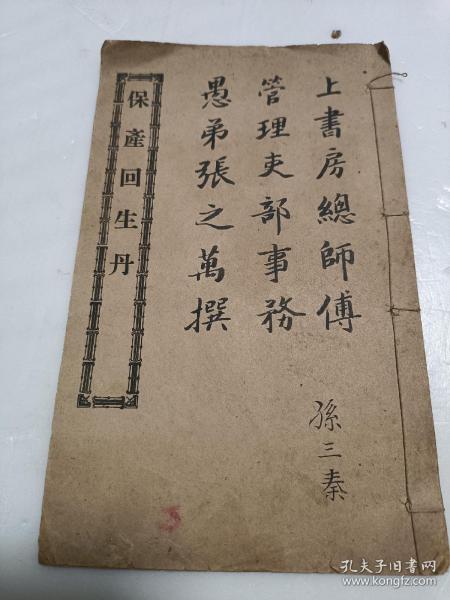 上書房總師傅
管理吏部事務
愚弟張之萬撰
孫三秦
保產回生丹
5
孔夫子旧书网
www.kongfz.com